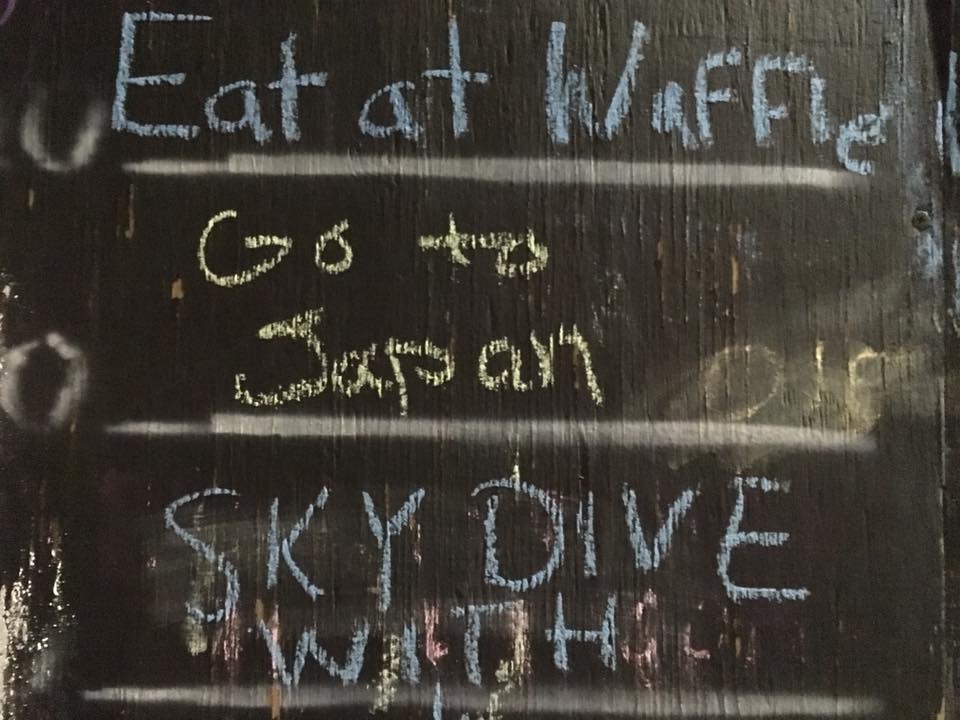 Eat at Waffle
Go to
Japan
SKY DIVE
WITH